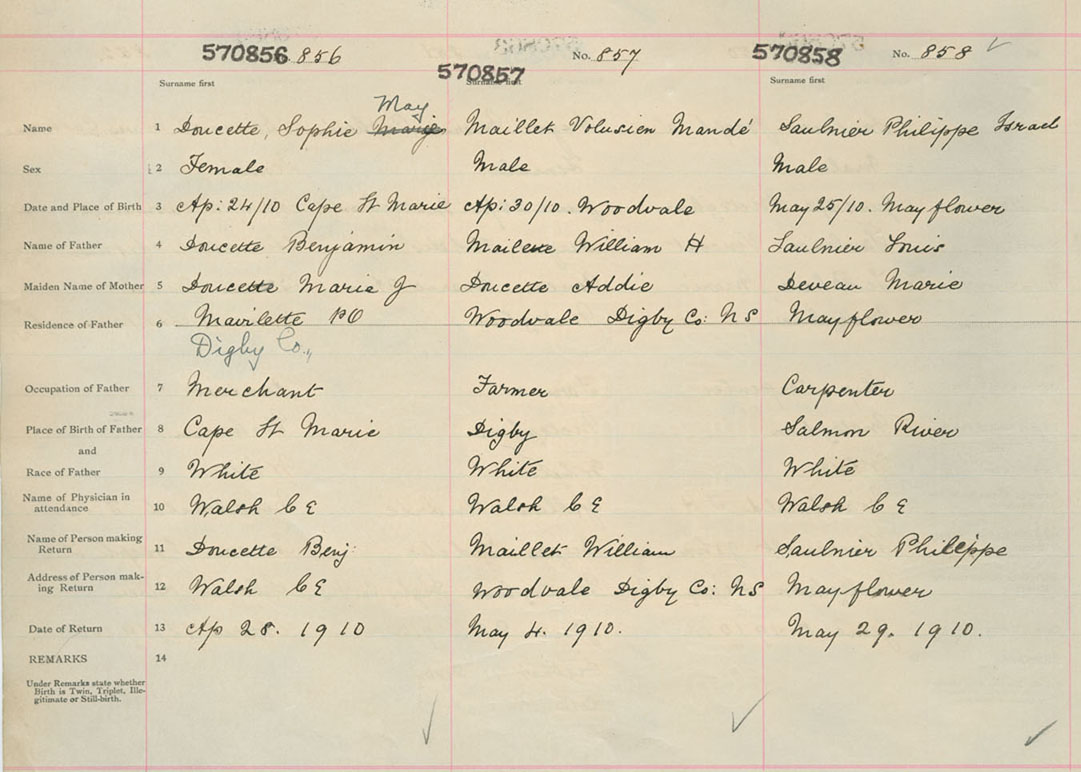 570856 856
570857 No. 857
570858 No. 858
Surname first Surname first Surname first
May
Name 1 Doucette, Sophie Marie Maillet Volusien Mandé Saulnier Philippe Israel
Sex 2 Female Male Male
Date and Place of Birth 3 Ap: 24/10 Cape St Marie Ap: 30/10. Woodvale May 25/10. Mayflower
Name of Father 4 Doucette Benjamin Mailette William H Saulnier Louis
Maiden Name of Mother 5 Doucette Marie J Doucette Addie Deveau Marie
Residence of Father 6 Mavilette PO Woodvale Digby Co: NS Mayflower
Digby Co.,
Occupation of Father 7 Merchant Farmer Carpenter
Place of Birth of Father 8 Cape St Marie Digby Salmon River
and
Race of Father 9 White White White
Name of Physician in
attendance 10 Walsh C E Walsh C E Walsh C E
Name of Person making
Return 11 Doucette Benj: Maillet William Saulnier Philippe
Address of Person mak-
ing Return 12 Walsh C E Woodvale Digby Co: NS Mayflower
Date of Return 13 Ap 28. 1910 May 4. 1910. May 29. 1910.
REMARKS 14
Under Remarks state whether
Birth is Twin, Triplet, Ille-
gitimate or Still-birth.